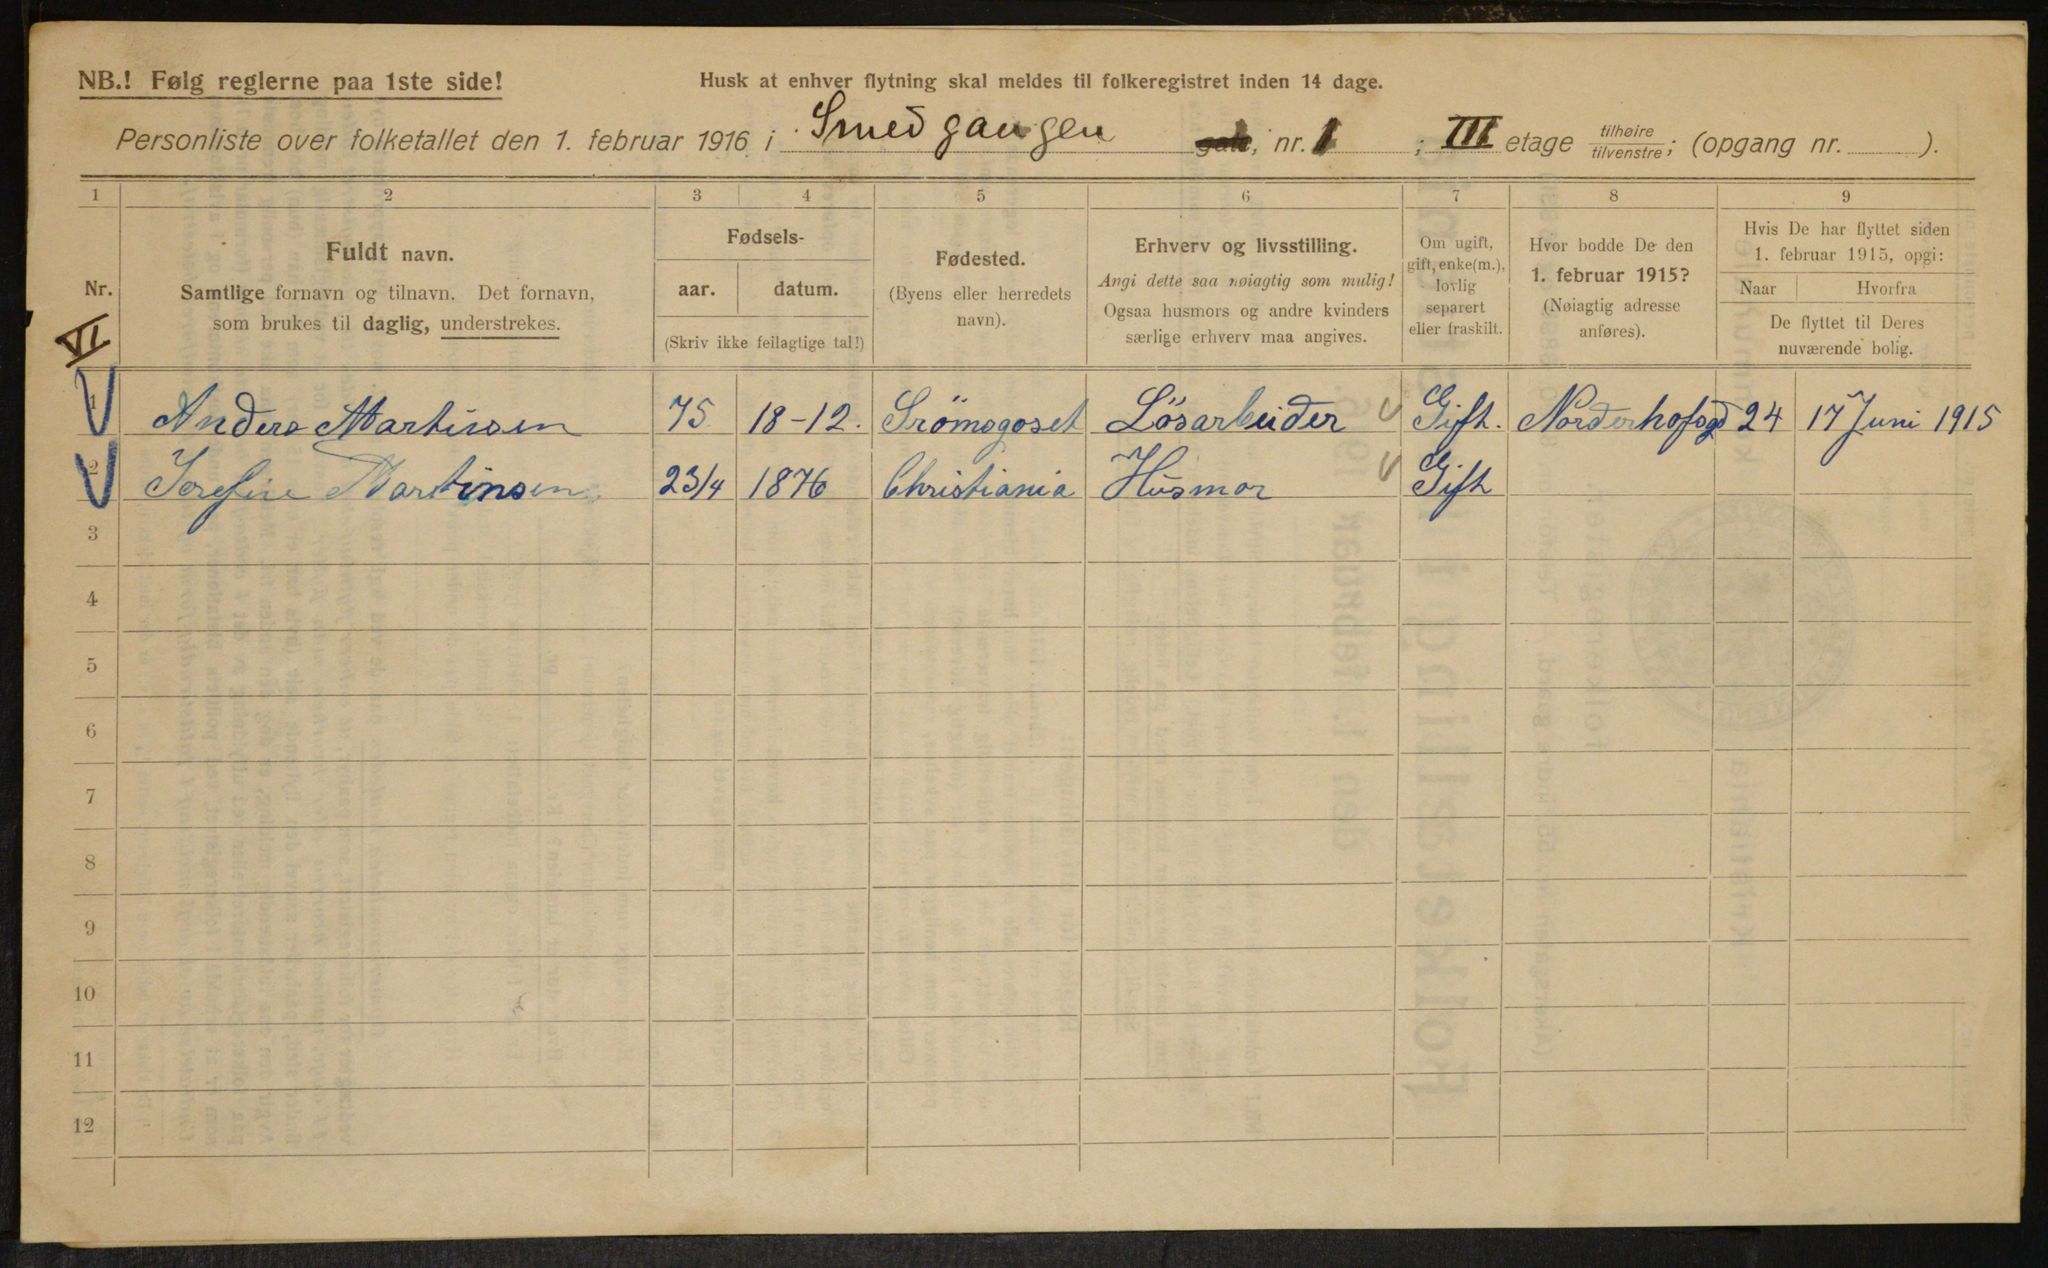 NB.! Følg reglerne paa 1ste side!
Husk at enhver flytning skal meldes til folkeregistret inden 14 dage.
Personliste over folketallet den 1. februar 1916 i Smedgangen gate, nr. 1 ; III etage tilhøire tilvenstre; (opgang nr. ).
1 2 3 4 5 6 7 8 9
Nr.
Fuldt navn.
Samtlige fornavn og tilnavn. Det fornavn,
som brukes til daglig, understrekes.
Fødsels-
aar. datum.
(Skriv ikke feilagtige tal!)
Fødested.
(Byens eller herredets
navn).
Erhverv og livsstilling.
Angi dette saa nøiagtig som mulig!
Ogsaa husmors og andre kvinders
særlige erhverv maa angives.
Om ugift,
gift, enke(m.),
lovlig
separert
eller fraskilt.
Hvor bodde De den
1. februar 1915?
(Nøiagtig adresse
anføres).
Hvis De har flyttet siden
1. februar 1915, opgi:
Naar Hvorfra
De flyttet til Deres
nuværende bolig.
VI
1 Anders Martinsen 75 18-12. Srömsgoset Lösarbeider Gift. Norderhofsgd 24 17 Juni 1915
2 Josefine Martinsen 23/4 1876 Christiania Husmor Gift
3
4
5
6
7
8
9
10
11
12